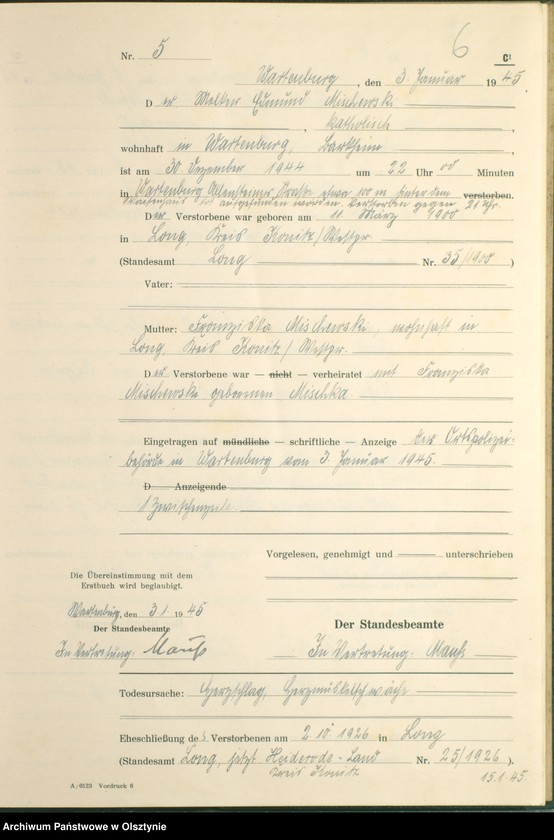 6
Nr. 5
C¹
Wartenburg, den 3. Januar 1945.
Der Melker Edmund Mischewski
, katholisch,
wohnhaft in Wartenburg, Bartheim,
ist am 30. Dezember 1944 um 22 Uhr 00 Minuten
in Wartenburg Allensteiner Straße etwa 100 m hinter dem verstorben.
tot aufgefunden worden. Verstorben gegen 20 Uhr.
Der Verstorbene war geboren am 11. März 1900
in Long, Kreis Konitz/Westpr.
(Standesamt Long Nr. 35/1900)
Vater:
Mutter: Franziska Mischewski, wohnhaft in
Long, Kreis Konitz/Westpr.
Der Verstorbene war — nicht — verheiratet mit Franziska
Mischewski geborenen Mischka.
Eingetragen auf mündliche — schriftliche — Anzeige der Ortspolizei-
behörde in Wartenburg vom 3. Januar 1945.
D Anzeigende
1 Zwischenzeile
Vorgelesen, genehmigt und unterschrieben
Die Übereinstimmung mit dem
Erstbuch wird beglaubigt.
Wartenburg, den 3.1.1945
Der Standesbeamte
In Vertretung:
Der Standesbeamte
In Vertretung.
Todesursache: Herzschlag, Herzmuskelschwäche
Eheschließung des Verstorbenen am 2.10.1926 in Long
(Standesamt Long, jetzt Land Nr. 25/1926).
Kreis Konitz
15.1.45.
A/0123 Vordruck 6
Archiwum Państwowe w Olsztynie